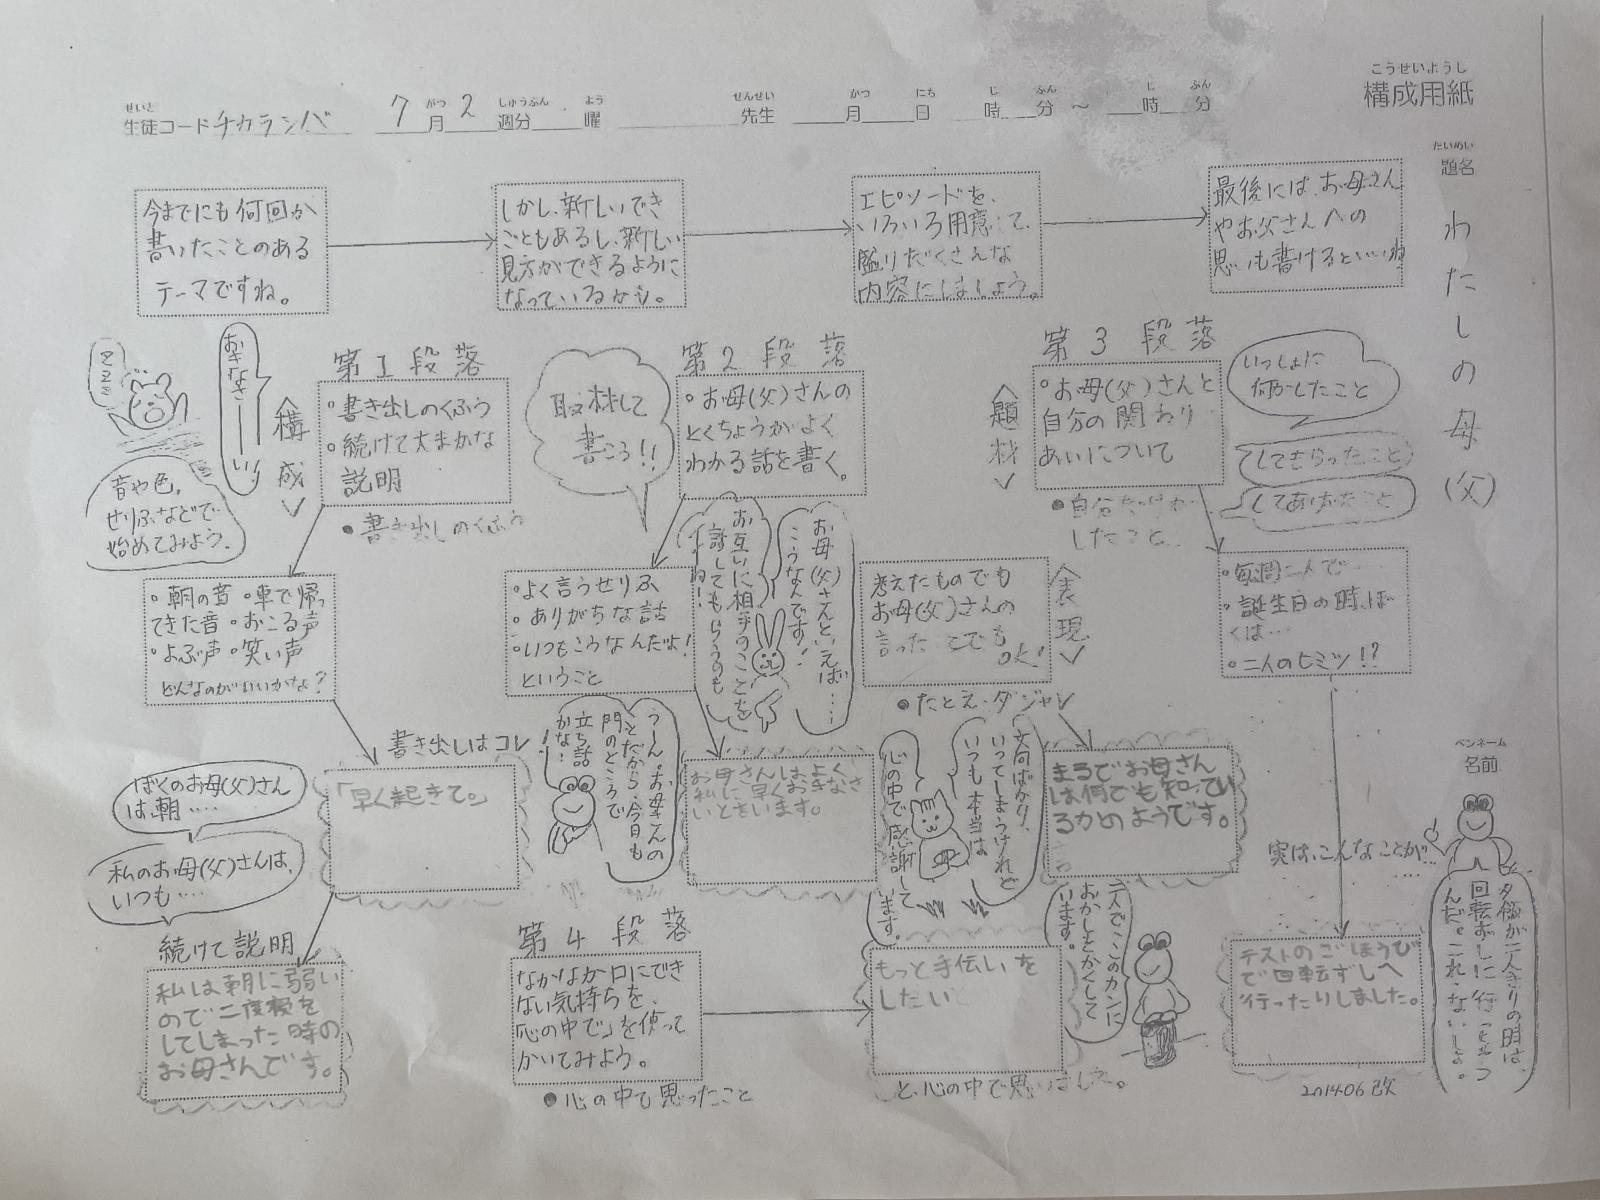 こうせいようし
構成用紙
せいと がつ しゅうぶん よう せんせい がつ にち じ ふん じ ふん
生徒コード チカラシバ 7月2週分 曜 先生 月 日 時 分〜 時 分
たいめい
題名
わたしの母(父)
今までにも何回か
書いたことのある
テーマですね。
しかし、新しいでき
ごともあるし、新しい
見方ができるように
なっているかも。
エピソードを、
いろいろ用意して、
盛りだくさんな
内容にしましょう。
最後には、お母さん
やお父さんへの
思いも書けるといいね
第1段落
〈構成〉
・書き出しのくふう
・続けて大まかな
説明
●書き出しのくふう
おきなさーーい!
ZZZ
音や色、
せりふなどで
始めてみよう。
・朝の音・車で帰っ
てきた音・おこる声
・よぶ声・笑い声
どんなのがいいかな?
書き出しはコレ!
「早く起きて。」
ぼくのお母(父)さん
は、朝‥‥
私のお母(父)さんは、
いつも‥‥
続けて説明
私は朝に弱い
ので二度寝を
してしまった時の
お母さんです。
取材して
書こう!!
第2段落
・お母(父)さんの
とくちょうがよく
わかる話を書く。
・よく言うせりふ
・ありがちな話
・いつもこうなんだよ!
ということ
お母(父)さんといえば‥‥
こうなんです!
お互いに相手のことを
話してもらうのも
いいね!
うーん。お母さんの
ことだから、今日も
門のところで
立ち話
かな!
お母さんはよく
私に早くおきなさ
いといます。
第3段落
〈題材〉
・お母(父)さんと
自分の関わり
あいについて
いっしょに
何かしたこと
してもらったこと
してあげたこと
・毎週二人で‥‥
・誕生日の時、ぼ
くは‥‥
・二人のヒミツ!?
〈表現〉
考えたものでも
お母(父)さんの
言ったことでも
OK!
●たとえ・ダジャレ
まるでお母さん
は何でも知ってい
るかのようです。
実は、こんなことが‥
夕飯が二人きりの時は、
回転ずしに行っちゃう
んだ。これ、ないしょ。
テストのごほうび
で回転ずしへ
行ったりしました。
文句ばかり、
いってしまうけれど
いつも本当は
心の中で感謝して
います。
二人でこのカンに
おかしをかくして
います。
第4段落
なかなか口にでき
ない気持ちを、
「心の中で」を使って
かいてみよう。
●心の中で思ったこと
もっと手伝いを
したい
と、心の中で思いました。
ペンネーム
名前
2014.06改